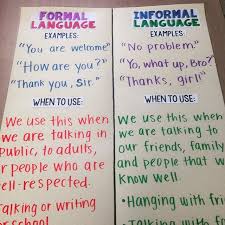 FORMAL
LANGUAGE
EXAMPLES:
"You are welcome"
"How are you?"
"Thank you, Sir."
WHEN TO USE:
We use this when
we are talking in
public, to adults,
or people who are
ell-respected.
Talking or writing
school
INFORMAL
LANGUAGE
EXAMPLES:
"No problem."
"Yo, what up, Bro?"
"Thanks, girl!"
WHEN TO USE:
We use this when
we are talking to
our friends, family
and people that w
know well.
• Hanging with fri
• Talking with fr